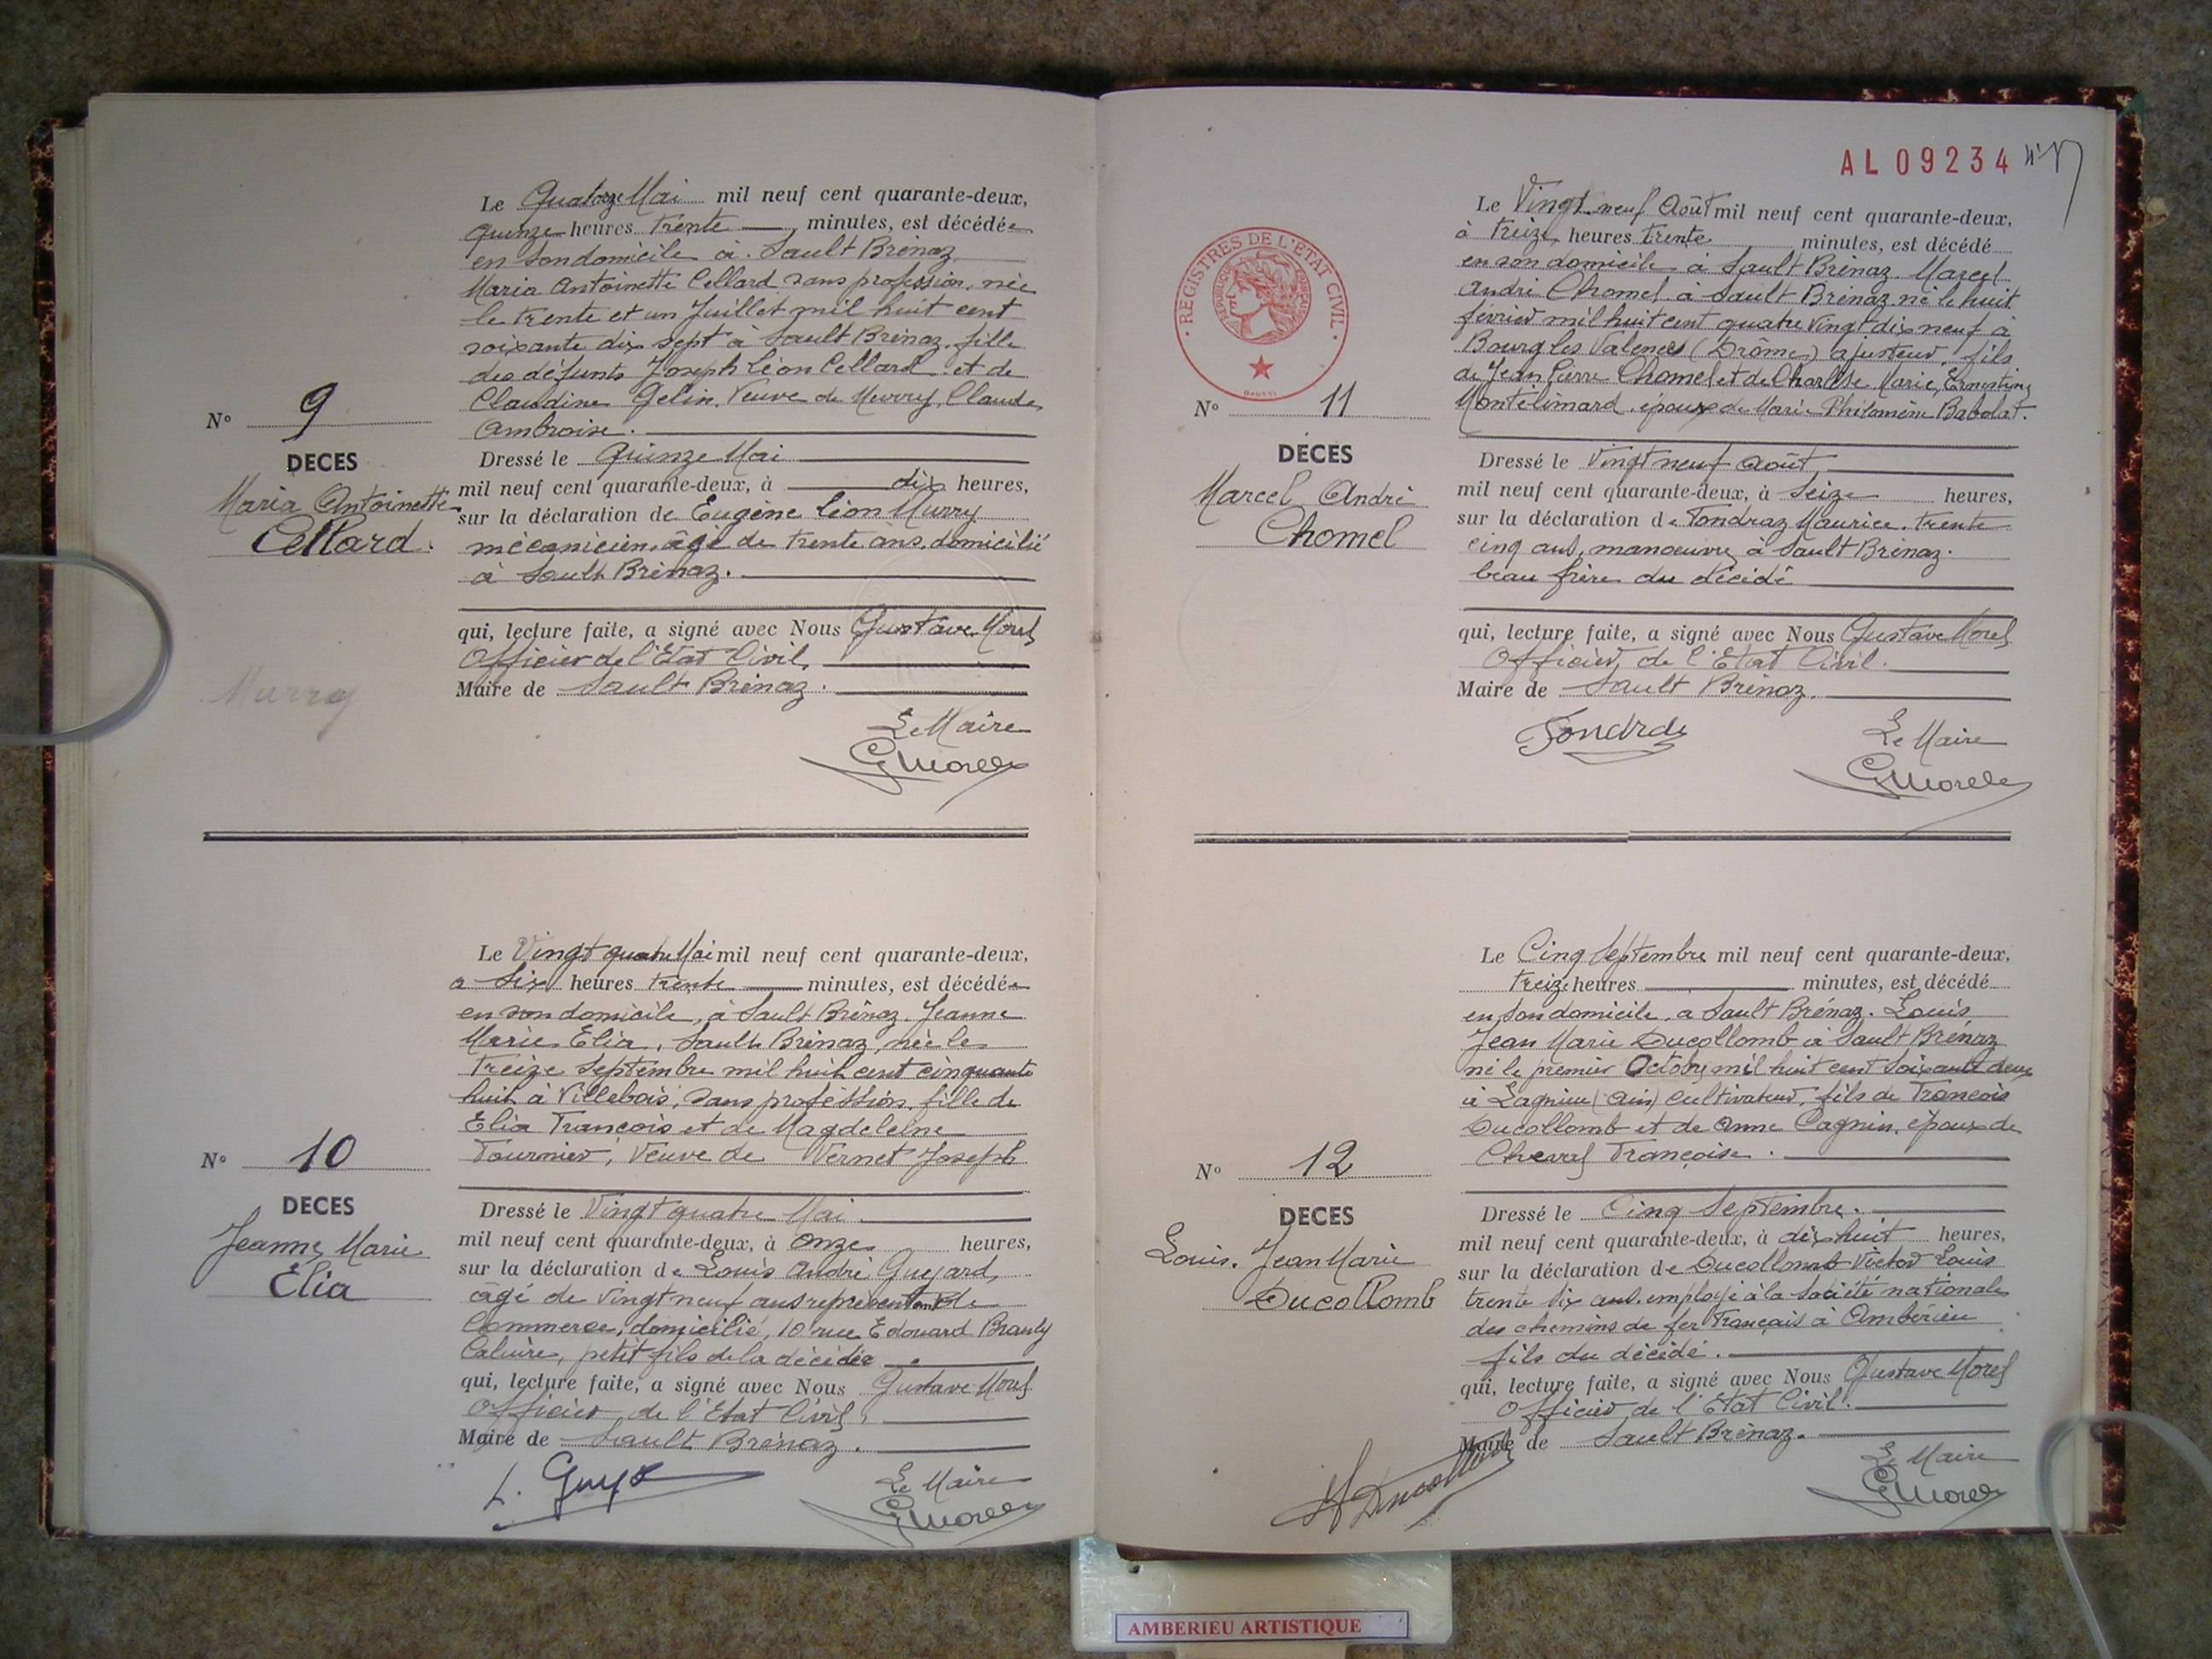 Le Quatorze Mai mil neuf cent quarante-deux,
quinze heures trente minutes, est décédée
en son domicile à Sault Brénaz
Maria Antoinette Cellard sans profession, née
le trente et un Juillet mil huit cent
soixante dix sept à Sault Brénaz, fille
des défunts Joseph Léon Cellard et de
Claudine Gelin, Veuve de Murry, Claude
Ambroise.
N° 9
DECES
Maria Antoinette
Cellard.
Dressé le Quinze Mai
mil neuf cent quarante-deux, à dix heures,
sur la déclaration de Eugène Léon Murry
mécanicien, âgé de trente ans, domicilié
à Sault Brénaz.
qui, lecture faite, a signé avec Nous Gustave Morel
Officier de l'Etat Civil,
Maire de Sault Brénaz.
Murry
Le Maire
GMorel
Le Vingt quatre Mai mil neuf cent quarante-deux,
a six heures trente minutes, est décédée
en son domicile, à Sault Brénaz. Jeanne
Marie Elia, Sault Brénaz, née le
treize Septembre mil huit cent cinquante
huit à Villebois, sans profession, fille de
Elia François et de Magdeleine
Fournier, Veuve de Vernet Joseph
N° 10
DECES
Jeanne Marie
Elia
Dressé le Vingt quatre Mai.
mil neuf cent quarante-deux, à onze heures,
sur la déclaration de Louis André Guyard,
âgé de vingt neuf ans représentant de
Commerce, domicilié, 10 rue Edouard Branly
Caluire, petit fils de la décédée
qui, lecture faite, a signé avec Nous Gustave Morel
Officier de l'Etat Civil,
Maire de Sault Brénaz.
Le Maire
GMorel
AL 09234
REGISTRES DE L'ETAT CIVIL
Le Vingt neuf Août mil neuf cent quarante-deux,
à treize heures trente minutes, est décédé
en son domicile à Sault Brénaz. Marcel
André Chomel à Sault Brénaz né le huit
février mil huit cent quatre vingt dix neuf à
Bourg les Valences (Drôme) ajusteur, fils
de Jean Pierre Chomel et de Charlise Marie, Ernestine
Montélimard, époux de Marie Philomène Babolat.
N° 11
DECES
Marcel André
Chomel
Dressé le Vingt neuf Août,
mil neuf cent quarante-deux, à Seize heures,
sur la déclaration de Fondraz Maurice, trente
cinq ans, manoeuvre à Sault Brénaz.
beau frère du décédé
qui, lecture faite, a signé avec Nous Gustave Morel
Officier de l'Etat Civil.
Maire de Sault Brénaz.
Le Maire
GMorel
Le Cinq Septembre mil neuf cent quarante-deux,
Treize heures minutes, est décédé
en son domicile, à Sault Brénaz. Louis
Jean Marie Ducollomb à Sault Brénaz
né le premier Octobre mil huit cent soixante deux
à Lagnieu (Ain) cultivateur, fils de François
Ducollomb et de Anne Cagnin, époux de
Cheval Françoise.
N° 12
DECES
Louis. Jean Marie
Ducollomb
Dressé le Cinq Septembre.
mil neuf cent quarante-deux, à dix huit heures,
sur la déclaration de Ducollomb Victor Louis
trente six ans, employé à la Société nationale
des chemins de fer Français à Ambérieu
fils du décédé.
qui, lecture faite, a signé avec Nous Gustave Morel
Officier de l'Etat Civil.
Maire de Sault Brénaz.
Le Maire
GMorel
AMBERIEU ARTISTIQUE